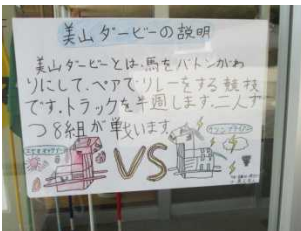 美山ダービーの説明
美山ダービーとは、馬をバトンがわ
りにして、ペアでリレーをする競技
です。トラックを半周します。二人ず
つ8組が戦います。
VS